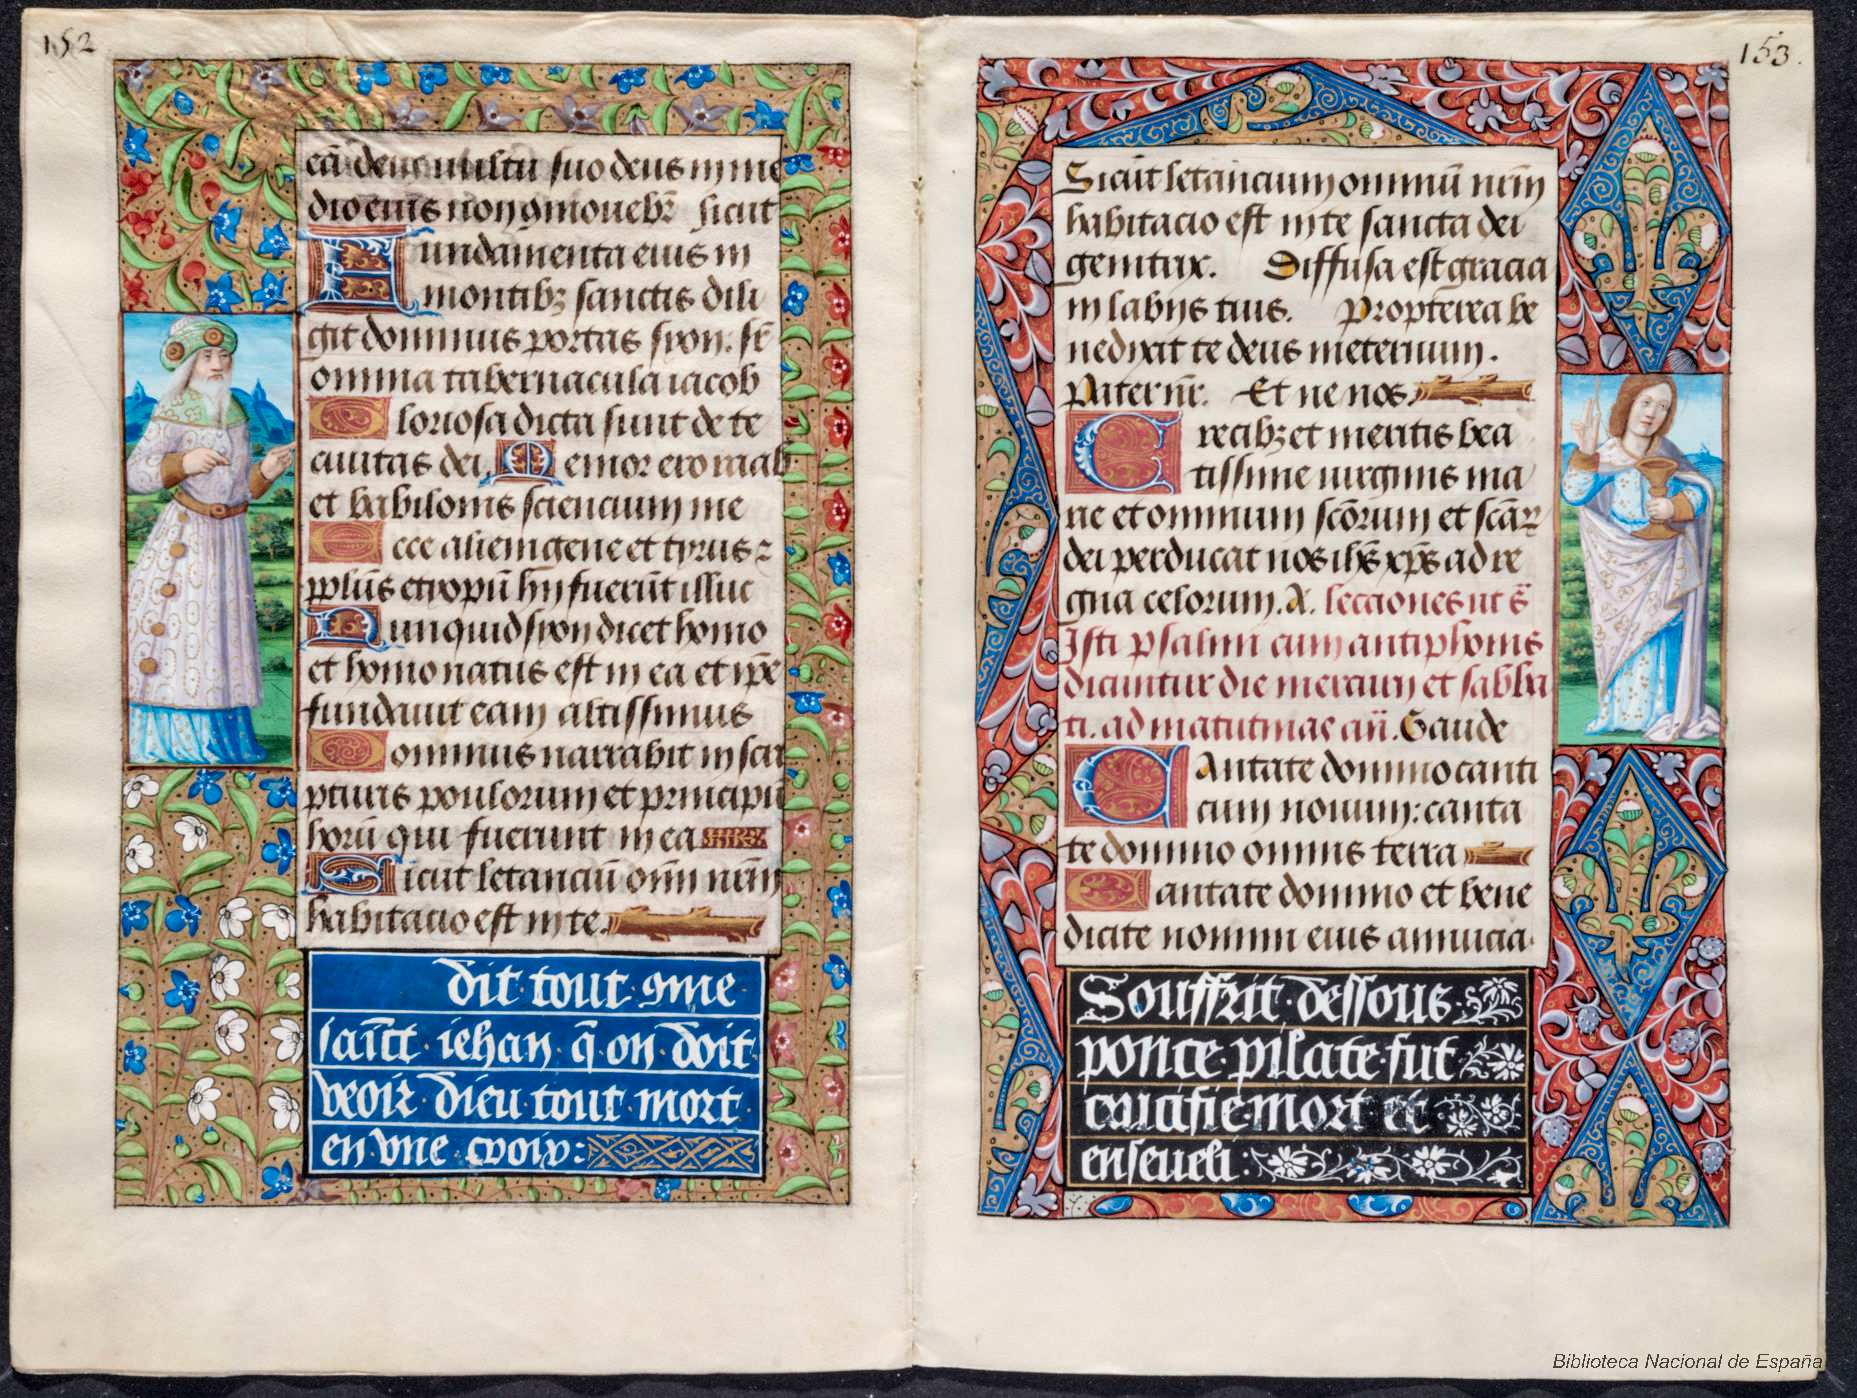 152
eā deus uultu suo deus in me
dio eius non ꝯmouebr̄ sicut
Fundamenta eius in
montibꝫ sanctis dili
git dominus portas syon: sr̄
omnia tabernacula iacob
Gloriosa dicta sunt de te
ciuitas dei. Memor ero raab
et babilonis sciencium me
Ecce alienigene et tyrus ⁊
pplūs ethyopū hij fuerūt illuc
Nunquid syon dicet homo
et homo natus est in ea et ip̄e
fundauit eam altissimus
Dominus narrabit in scri
pturis poulorum et principū
horū qui fuerunt in ea
Sicut letanciū oīm nr̄m
habitacio est in te.
dit·tout·ꝯme·
saīct·iehan·q̄·on·doit·
veoir·dieu·tout·mort·
en·vne·croix:
153.
Sicut letancium omniū nr̄m
habitacio est in te sancta dei
genitrix. Diffusa est gracia
in labijs tuis. Propterea be
nedixit te deus in eternum.
Pater nr̄. Et ne nos.
Precibꝫ et meritis bea
tissime uirginis ma
rie et omnium scōrum et scāꝝ
dei perducat nos ih̄s xp̄s ad re
gna celorum. A. lectiones ut s̄
Isti psalmi cum antiphonis
dicuntur die mercurij et sabba
ti. ad matutinas añ. Gaude
Cantate domino canti
cum nouum: canta
te domino omnis terra
Cantate domino et bene
dicite nomini eius annucia
Souffrit·dessous·
ponce·pilate·fut·
crucifie·mort·et
enseueli:
Biblioteca Nacional de España